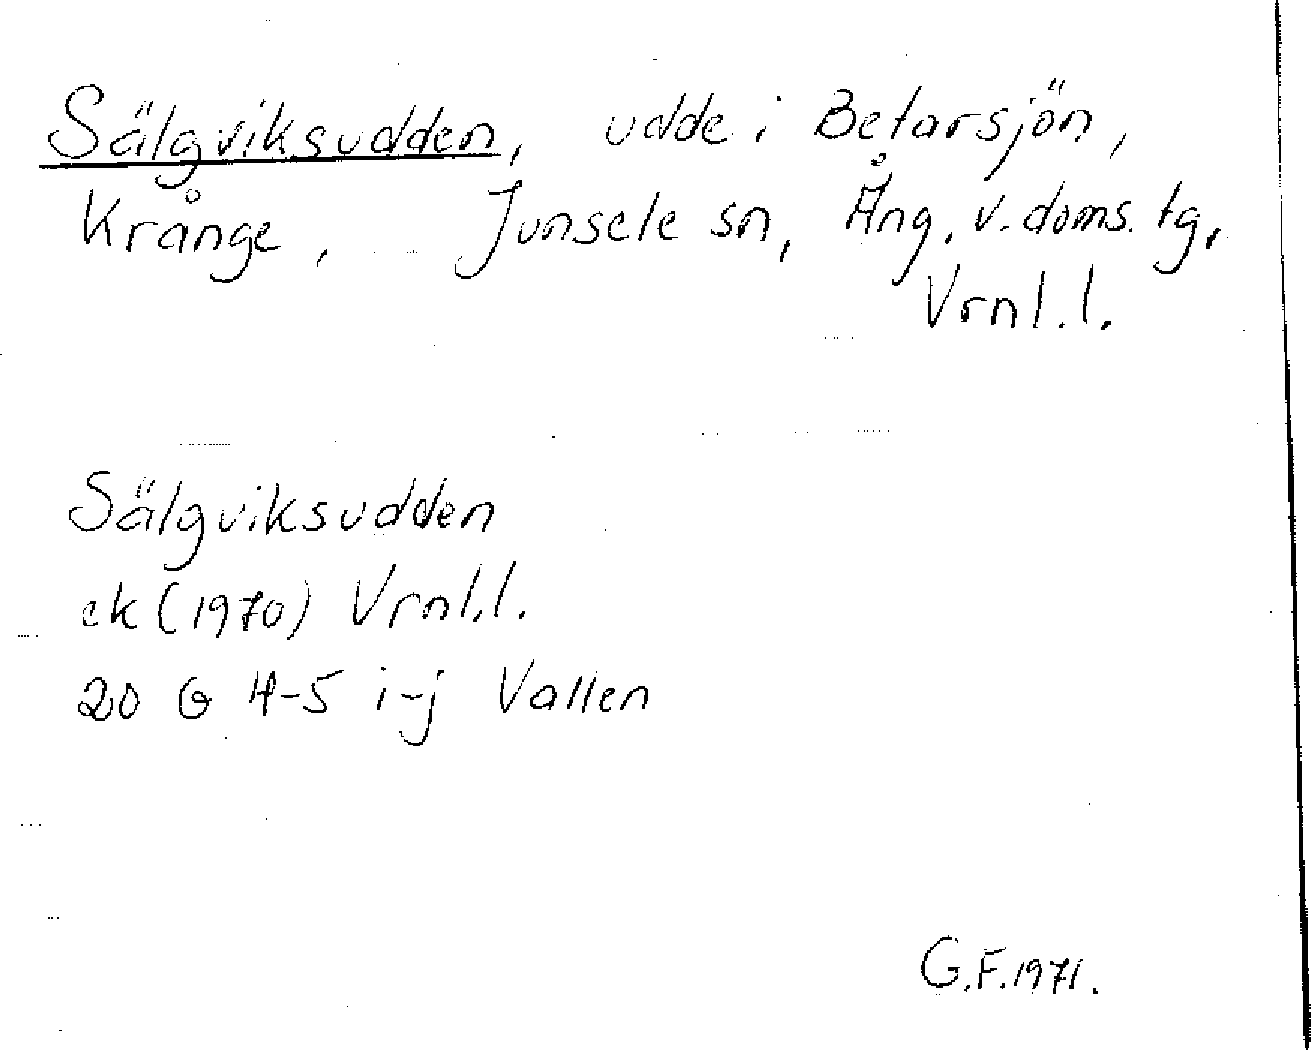 Sälgviksudden, udde i Betarsjön,
Krånge, Junsele sn, Ång. v. doms. tg,
Vrnl.l.
Sälgviksudden
ek (1970) Vrnl.l.
20 G 4-5 i-j Vallen
G.F. 1971.